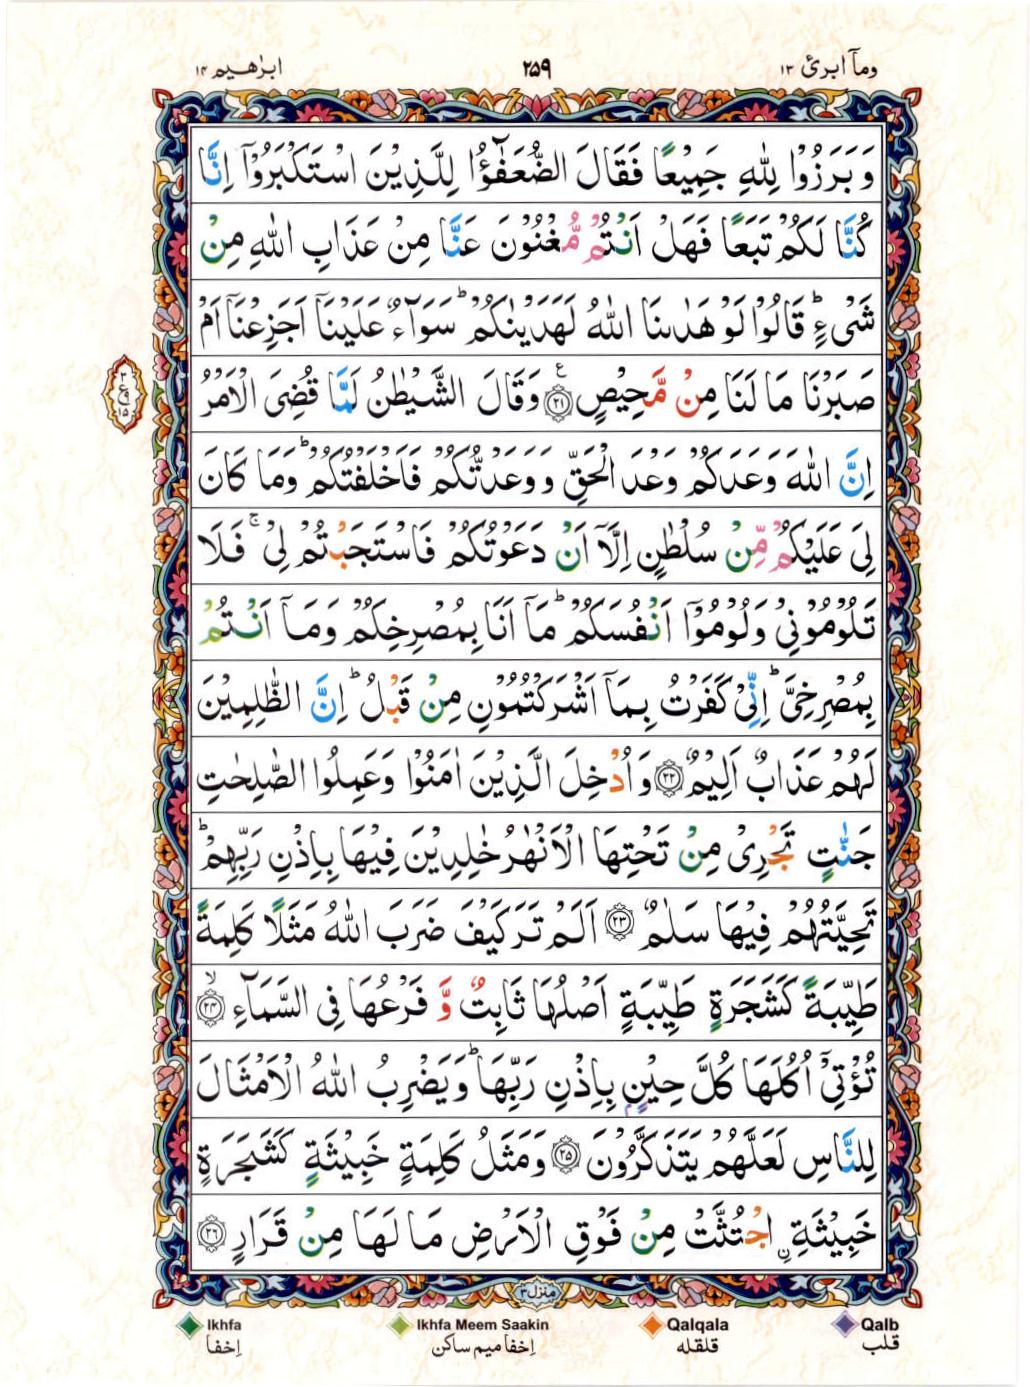 ابرٰهيم ١٤
٢٥٩
وماۤ ابرئ ١٣
وَبَرَزُوْا لِلّٰهِ جَمِيْعًا فَقَالَ الضُّعَفٰٓؤُا لِلَّذِيْنَ اسْتَكْبَرُوْۤا اِنَّا
كُنَّا لَكُمْ تَبَعًا فَهَلْ اَنْتُمْ مُّغْنُوْنَ عَنَّا مِنْ عَذَابِ اللّٰهِ مِنْ
شَىْءٍ ؕ قَالُوْا لَوْ هَدٰٮنَا اللّٰهُ لَهَدَيْنٰكُمْ ؕ سَوَآءٌ عَلَيْنَاۤ اَجَزِعْنَاۤ اَمْ
صَبَرْنَا مَا لَنَا مِنْ مَّحِيْصٍ ۟ ٢١ وَقَالَ الشَّيْطٰنُ لَمَّا قُضِىَ الْاَمْرُ
اِنَّ اللّٰهَ وَعَدَكُمْ وَعْدَ الْحَقِّ وَوَعَدْتُّكُمْ فَاَخْلَفْتُكُمْ ؕ وَمَا كَانَ
لِىَ عَلَيْكُمْ مِّنْ سُلْطٰنٍ اِلَّاۤ اَنْ دَعَوْتُكُمْ فَاسْتَجَبْتُمْ لِىْ ۚ فَلَا
تَلُوْمُوْنِىْ وَلُوْمُوْۤا اَنْفُسَكُمْ ؕ مَاۤ اَنَا بِمُصْرِخِكُمْ وَمَاۤ اَنْتُمْ
بِمُصْرِخِىَّ ؕ اِنِّىْ كَفَرْتُ بِمَاۤ اَشْرَكْتُمُوْنِ مِنْ قَبْلُ ؕ اِنَّ الظّٰلِمِيْنَ
لَهُمْ عَذَابٌ اَلِيْمٌ ٢٢ وَاُدْخِلَ الَّذِيْنَ اٰمَنُوْا وَعَمِلُوا الصّٰلِحٰتِ
جَنّٰتٍ تَجْرِىْ مِنْ تَحْتِهَا الْاَنْهٰرُ خٰلِدِيْنَ فِيْهَا بِاِذْنِ رَبِّهِمْ ؕ
تَحِيَّتُهُمْ فِيْهَا سَلٰمٌ ٢٣ اَلَمْ تَرَ كَيْفَ ضَرَبَ اللّٰهُ مَثَلًا كَلِمَةً
طَيِّبَةً كَشَجَرَةٍ طَيِّبَةٍ اَصْلُهَا ثَابِتٌ وَّ فَرْعُهَا فِى السَّمَآءِ ۙ ٢٤
تُؤْتِىْۤ اُكُلَهَا كُلَّ حِيْنٍۢ بِاِذْنِ رَبِّهَا ؕ وَيَضْرِبُ اللّٰهُ الْاَمْثَالَ
لِلنَّاسِ لَعَلَّهُمْ يَتَذَكَّرُوْنَ ٢٥ وَمَثَلُ كَلِمَةٍ خَبِيْثَةٍ كَشَجَرَةٍ
خَبِيْثَةِ ۨ اجْتُثَّتْ مِنْ فَوْقِ الْاَرْضِ مَا لَهَا مِنْ قَرَارٍ ٢٦
منزل ٣
Ikhfa
Ikhfa Meem Saakin
Qalqala
Qalb
اِخفا
اِخفا میم ساکن
قلقله
قلب